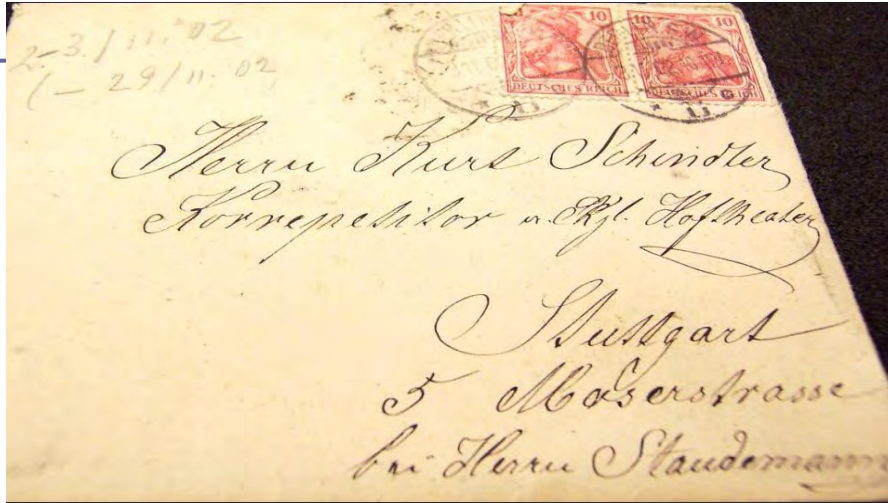 2-3./11.02
(- 29/11.02
10 10 10
DEUTSCHES REICH DEUTSCHES REICH
Herrn Kurt Schindler
Korrepetitor a. Kgl. Hoftheater
Stuttgart
5 Moserstrasse
bei Herrn Staudemann